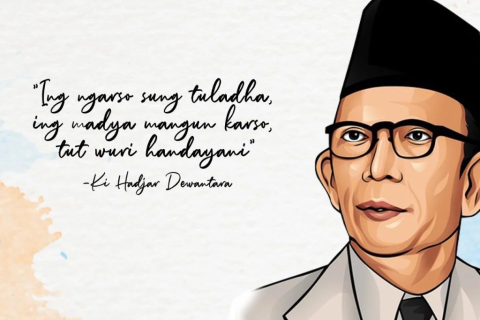 "Ing ngarso sung tuladha,
ing madya mangun karso,
tut wuri handayani"
-Ki Hadjar Dewantara